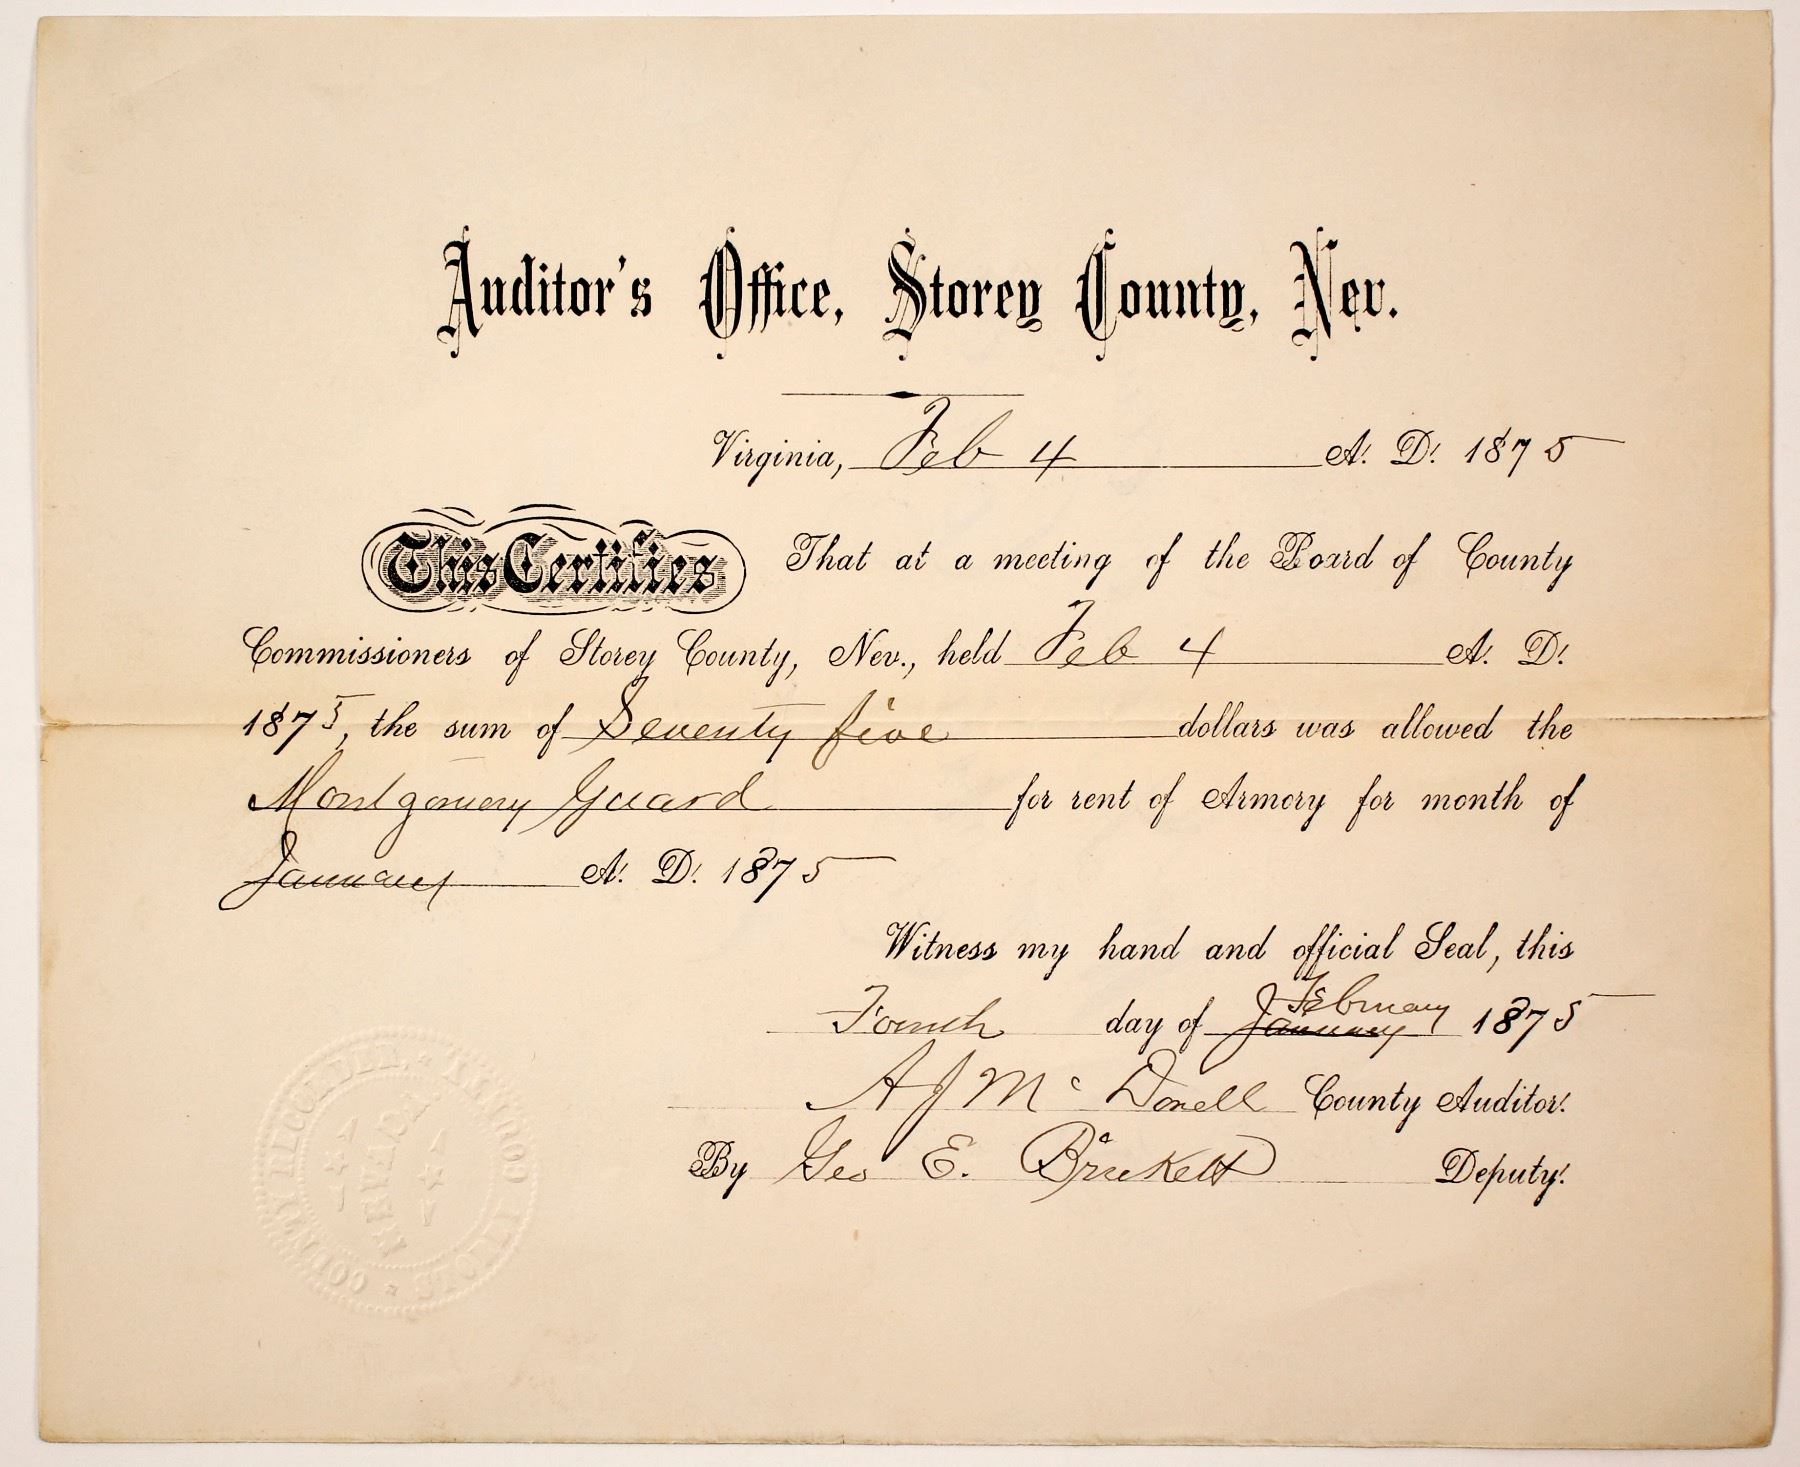 Auditor's Office, Storey County, Nev.
Virginia, Feb 4 A. D. 1875
This Certifies That at a meeting of the Board of County
Commissioners of Storey County, Nev., held Feb 4 A. D.
1875, the sum of Seventy five dollars was allowed the
Montgomery Guard for rent of Armory for month of
January A. D. 1875
Witness my hand and official Seal, this
February
Fourth day of January 1875
A J Mc Donell County Auditor.
By Geo E. Brickett Deputy.
COUNTY RECORDER
STOREY COUNTY
NEVADA